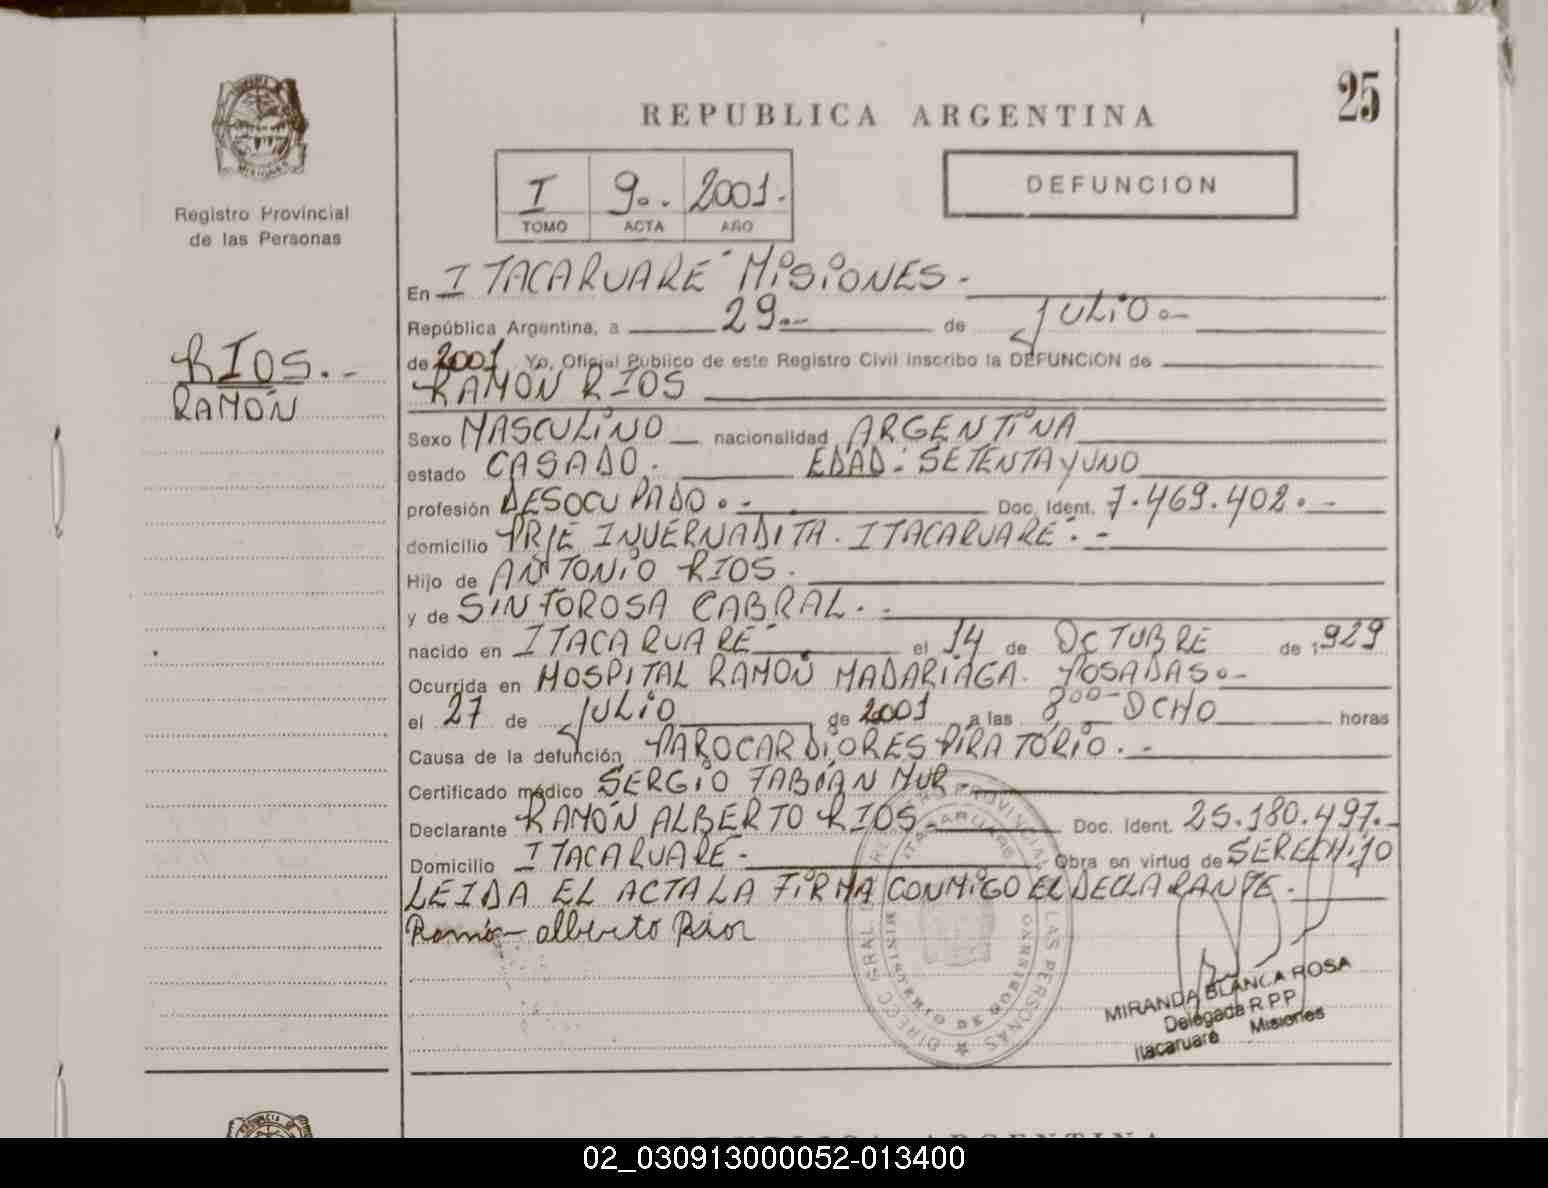 25
REPUBLICA ARGENTINA
Registro Provincial
de las Personas
I 9.. 2001.
TOMO ACTA AÑO
DEFUNCION
RIOS.-
RAMÓN
En ITACARUARE MISIONES.-
República Argentina, a 29.-- de Julio.-
de 2001 Yo, Oficial Publico de este Registro Civil inscribo la DEFUNCION de
RAMÓN RIOS
Sexo MASCULINO nacionalidad ARGENTINA
estado CASADO. EDAD: SETENTA Y UNO
profesión DESOCUPADO.- Doc. Ident. 7.469.402.-
domicilio PRJE INVERNADITA. ITACARUARE.-
Hijo de ANTONIO RIOS.
y de SINFOROSA CABRAL.-
nacido en ITACARUARE el 14 de OCTUBRE de 1929
Ocurrida en HOSPITAL RAMON MADARIAGA. POSADAS.-
el 27 de JULIO de 2001 a las 8,00- OCHO horas
Causa de la defunción PAROCARDIORESPIRATORIO.-
Certificado médico SERGIO FABIAN MUR-
Declarante RAMÓN ALBERTO RIOS Doc. Ident. 25.180.497.-
Domicilio ITACARUARE- Obra en virtud de SERELHIJO
LEIDA EL ACTA LA FIRMA CONMIGO EL DECLARANTE.
Ramón alberto Rios
DIRECC. GRAL. DEL REGISTRO PROVINCIAL DE LAS PERSONAS
ITACARUARE
MINISTERIO DE GOBIERNO
MIRANDA BLANCA ROSA
Delegada R.P.P
Itacaruaré Misiones
REPUBLICA ARGENTINA
02_030913000052-013400